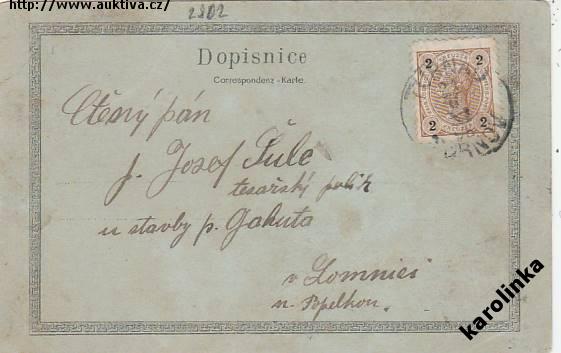 http://www.auktiva.cz/
2802
Dopisnice
Correspondenz-Karte.
2 2
2 2
Ctěný pán
p. Josef Šulc
tesařský polír
u stavby p. Gakuta
v Lomnici
n. Popelkou.
karolinka